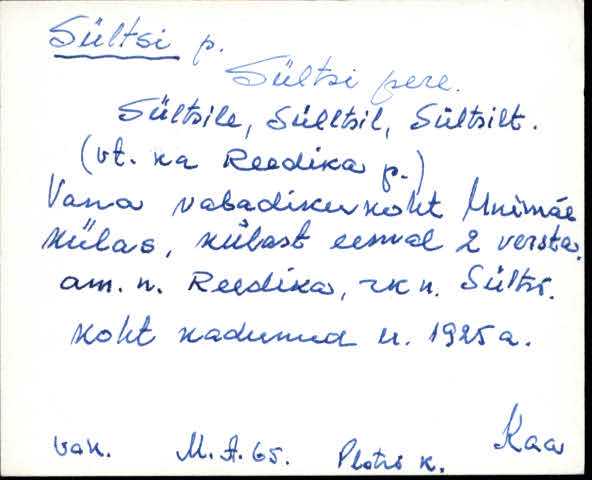 Sültsi p.
Sültsi pere.
Sültsile, Sültsil, Sültsilt.
(vt. ka Reedika p.)
Vana vabadikukoht Unimäe
külas, külast eemal 2 versta.
am. n. Reedika, rk n. Sültsi.
koht kadunud u. 1925 a.
Kaa
vak. M. A. 65. k.